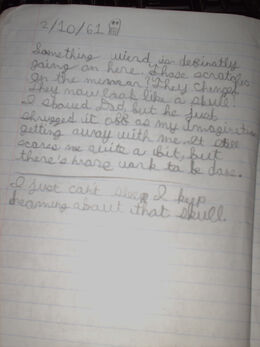 2/10/61
Something wierd is definatly
going on here. Those scratches
on the mirror? They changed
They now look like a skull!
I showed Dad, but he just
shrugged it off as my imagination
getting away with me. It still
scares me quite a bit, but
there's work to be done.
I just can't sleep I kep
dreaming about that skull.